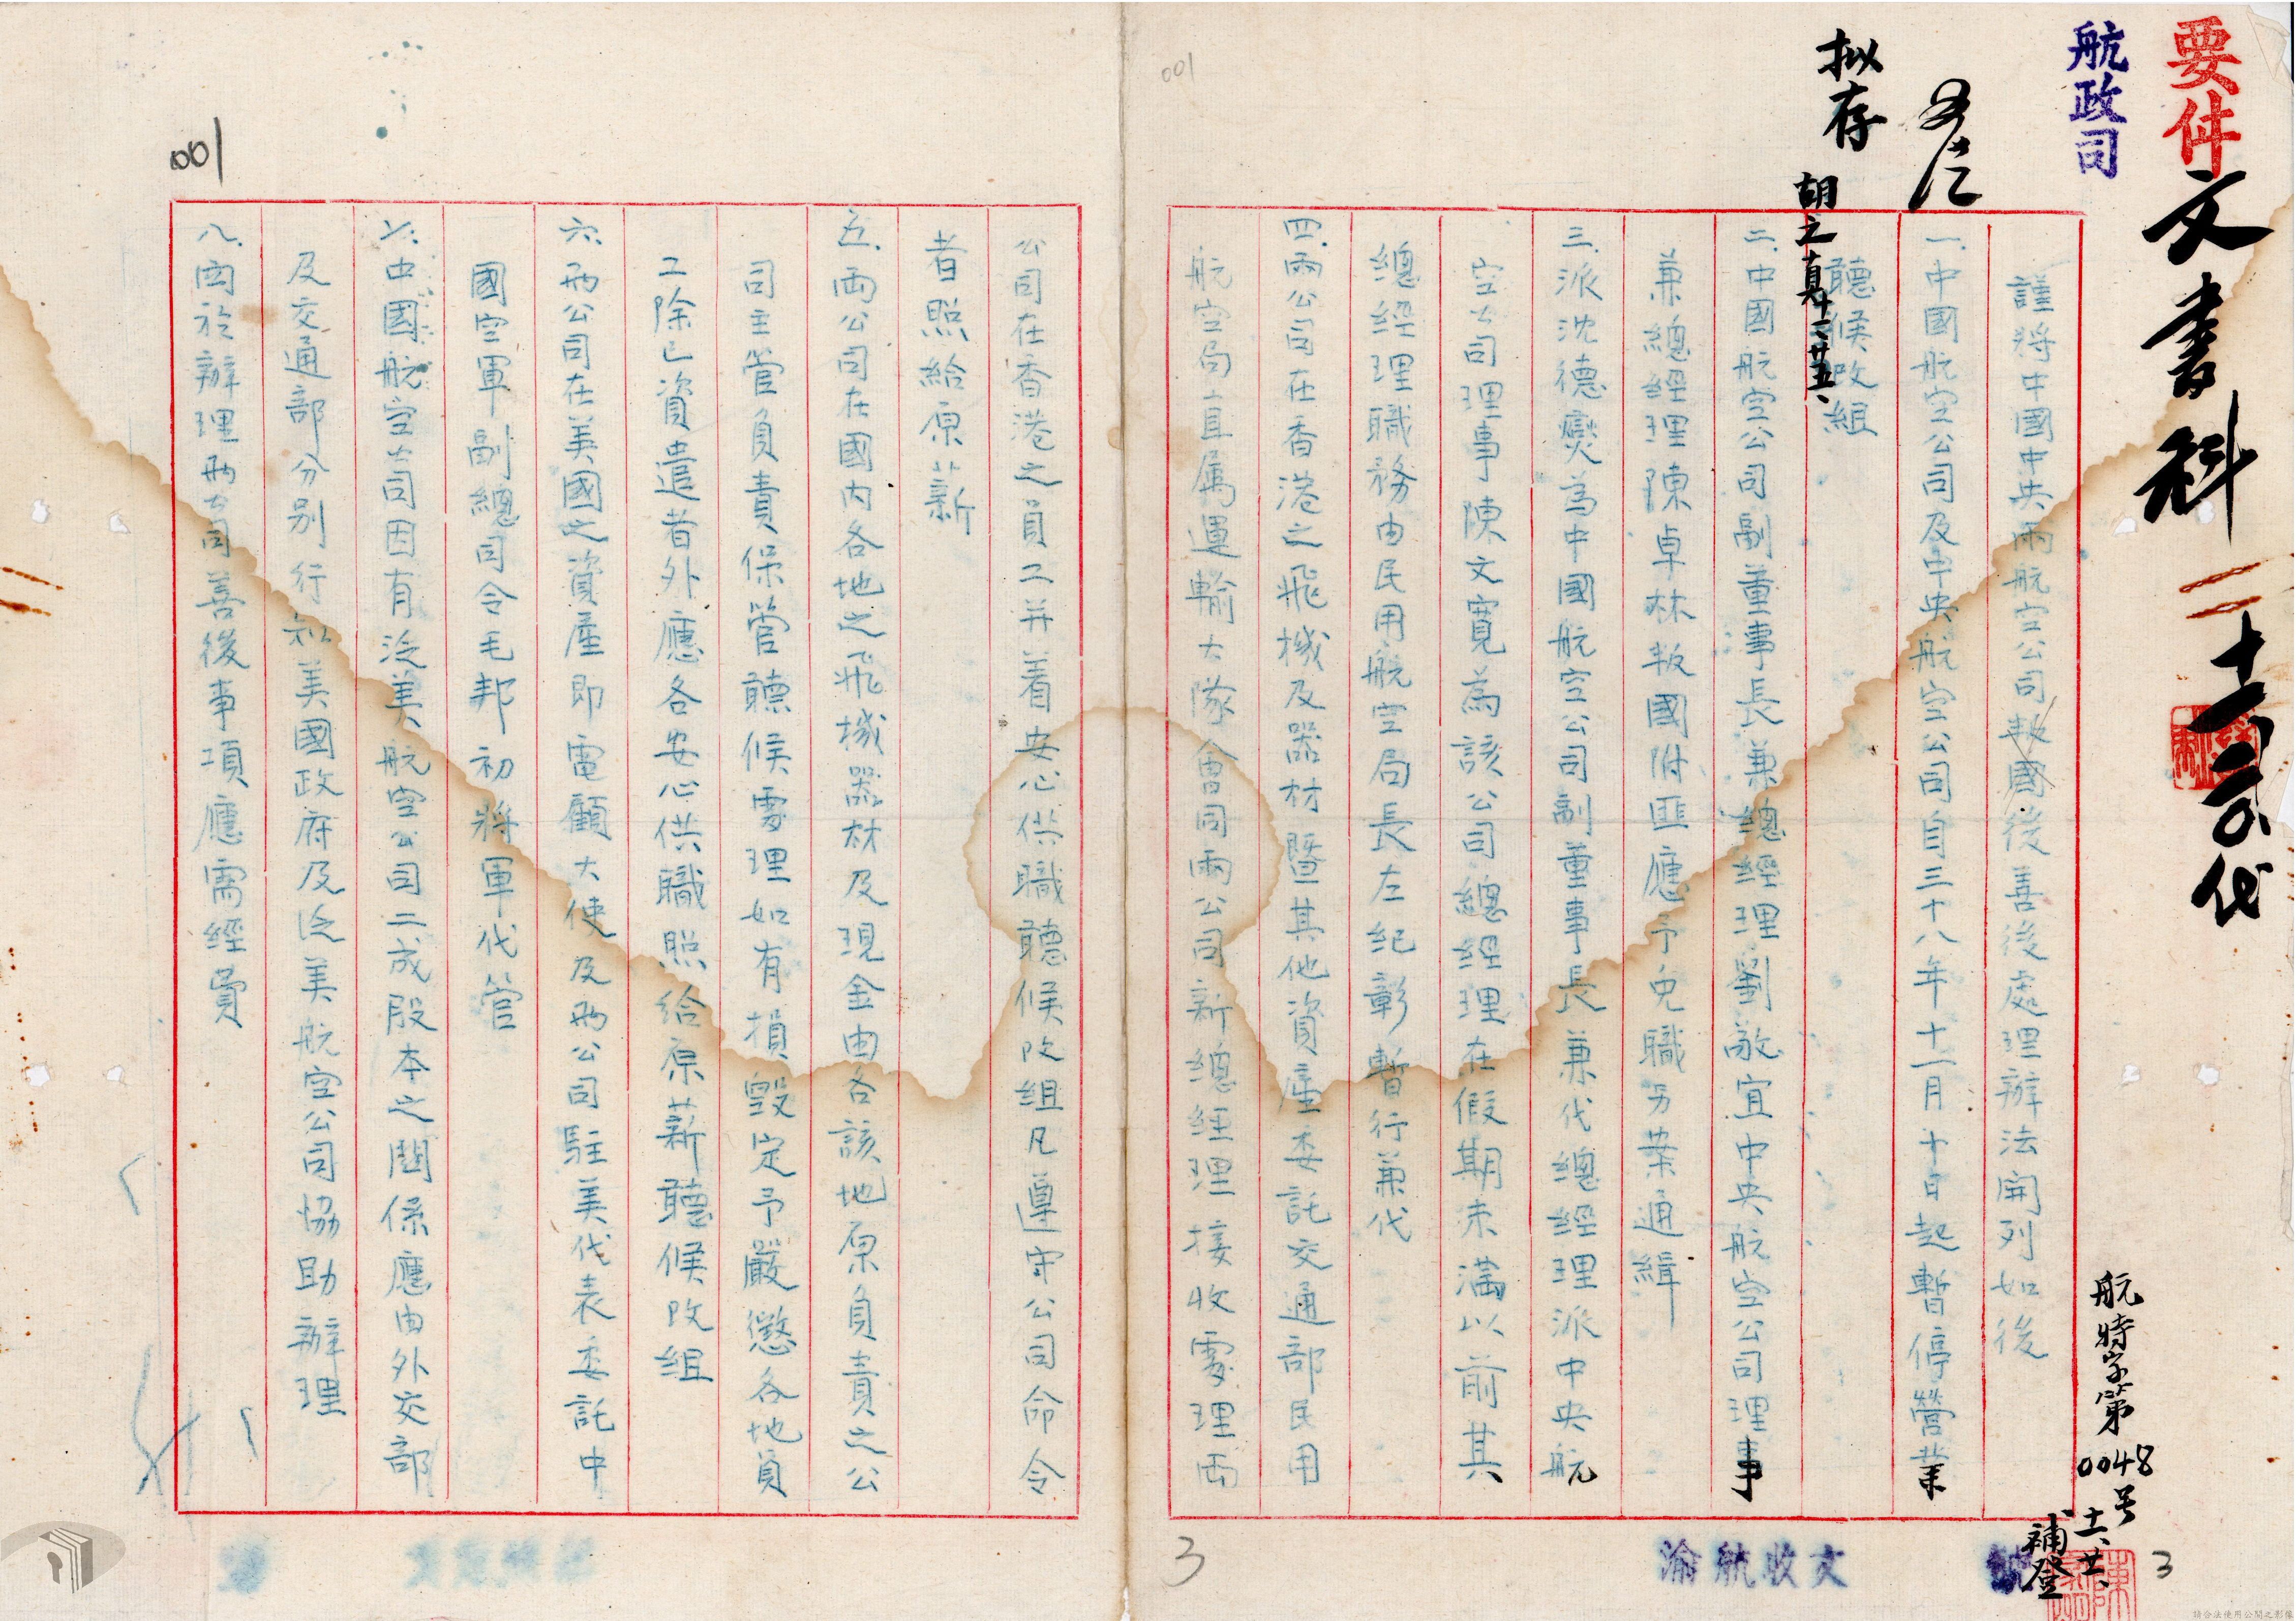 要件
航政司
文書科
十二 代
拟存
胡之真 十二 廿五、
航特字第0048号
十一、廿六、
補登
謹將中國中央兩航空公司叛國後善後處理辦法開列如後
一.中國航空公司及中央航空公司自三十八年十一月十日起暫停營業
聽候改組
二.中國航空公司副董事長兼總經理劉敬宜中央航空公司理事
兼總經理陳卓林叛國附匪應予免職另案通緝
三.派沈德燮為中國航空公司副董事長兼代總經理派中央航
空公司理事陳文寬為該公司總經理在假期未滿以前其
總經理職務由民用航空局長左紀彰暫行兼代
四.兩公司在香港之飛機及器材暨其他資產委託交通部民用
航空局直屬運輸大隊會同兩公司新總經理接收處理兩
公司在香港之員工並着安心供職聽候改組凡遵守公司命令
者照給原薪
五.兩公司在國內各地之飛機器材及現金由各該地原負責之公
司主管負責保管聽候處理如有損毀定予嚴懲各地員
工除已資遣者外應各安心供職照給原薪聽候改組
六.兩公司在美國之資產即電顧大使及兩公司駐美代表委託中
國空軍副總司令毛邦初將軍代管
七.中國航空公司因有泛美航空公司二成股本之關係應由外交部
及交通部分別行知美國政府及泛美航空公司協助辦理
八.關於辦理兩公司善後事項應需經費
渝航收文
號
001
001
3
3
請合法使用公開之影像